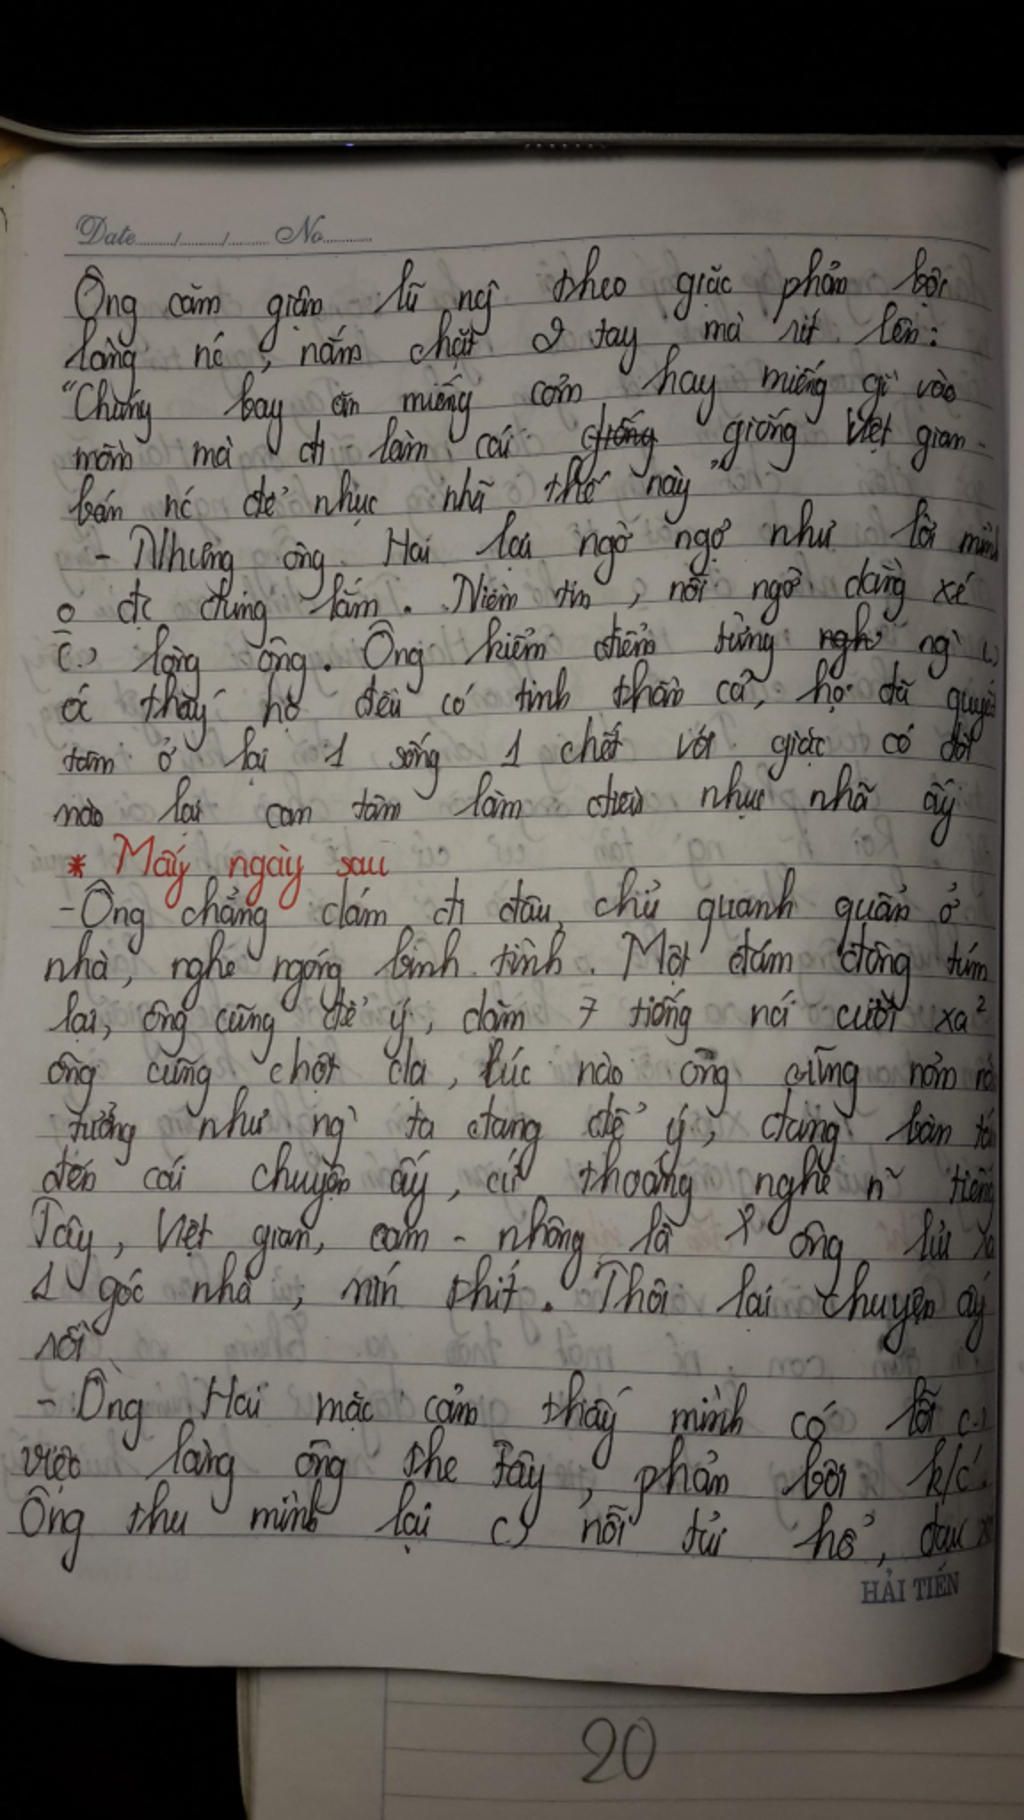 Date....../....../...... No..........
Ông căm giận lũ ng theo giặc phản bội
làng nc, nắm chặt 2 tay mà rít lên:
"Chúng bay ăn miếng cơm hay miếng gì vào
mồm mà đi làm cái giống giống Việt gian
bán nc để nhục nhã thế này"
- Nhưng ông Hai lại ngờ ngợ như lời mình
o đc đúng lắm. Niềm tin, nỗi ngờ dằng xé
lòng ông. Ông kiểm điểm từng ngh ng
óc thấy họ đều có tinh thần cả, họ đã quyết
tâm ở lại 1 sống 1 chết với giặc có đời
nào lại cam tâm làm điều nhục nhã ấy
* Mấy ngày sau
- Ông chẳng dám đi đâu, chỉ quanh quẩn ở
nhà, nghe ngóng binh tình. Một đám đông túm
lại, ông cũng để ý, dăm 7 tiếng nói cười xa²
ông cũng chột dạ, lúc nào ông cũng nơm nớ
tưởng như ng ta đang để ý, đang bàn tán
đến cái chuyện ấy, cứ thoáng nghe n~ tiếng
Tây, Việt gian, cam - nhông là ông lủi ra
1 góc nhà, nín thít. Thôi lại chuyện ấy
rồi
- Ông Hai mặc cảm thấy mình có lỗi
việc làng ông the Tây, phản bội k/c.
Ông thu mình lại nỗi tủi hổ, đau
HẢI TIẾN
20